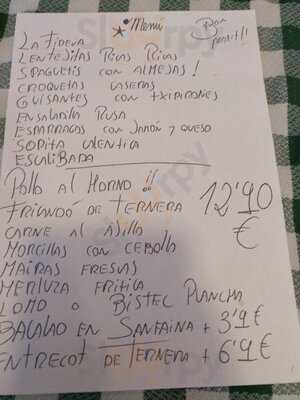 Menú
Bon profit!!
LA FIDEUA
LENTEJITAS RICAS RICAS
SPAGUETIS CON ALMEJAS!
CROQUETAS CASERAS
GUISANTES CON TXIPIRONES
ENSALADILLA RUSA
ESPARRAGOS CON JAMÓN Y QUESO
SOPITA CALENTICA
ESCALIBADA
Pollo AL HORNO ¡!
FRICANDÓ DE TERNERA 12'90 €
CARNE AL AJILLO
MORCILLAS CON CEBOLLA
MAIRAS FRESCAS
MERLUZA FRITICA
LOMO O BISTEC PLANCHA
BACALAO EN SANFAINA + 3'9 €
ENTRECOT DE TERNERA + 6'9 €